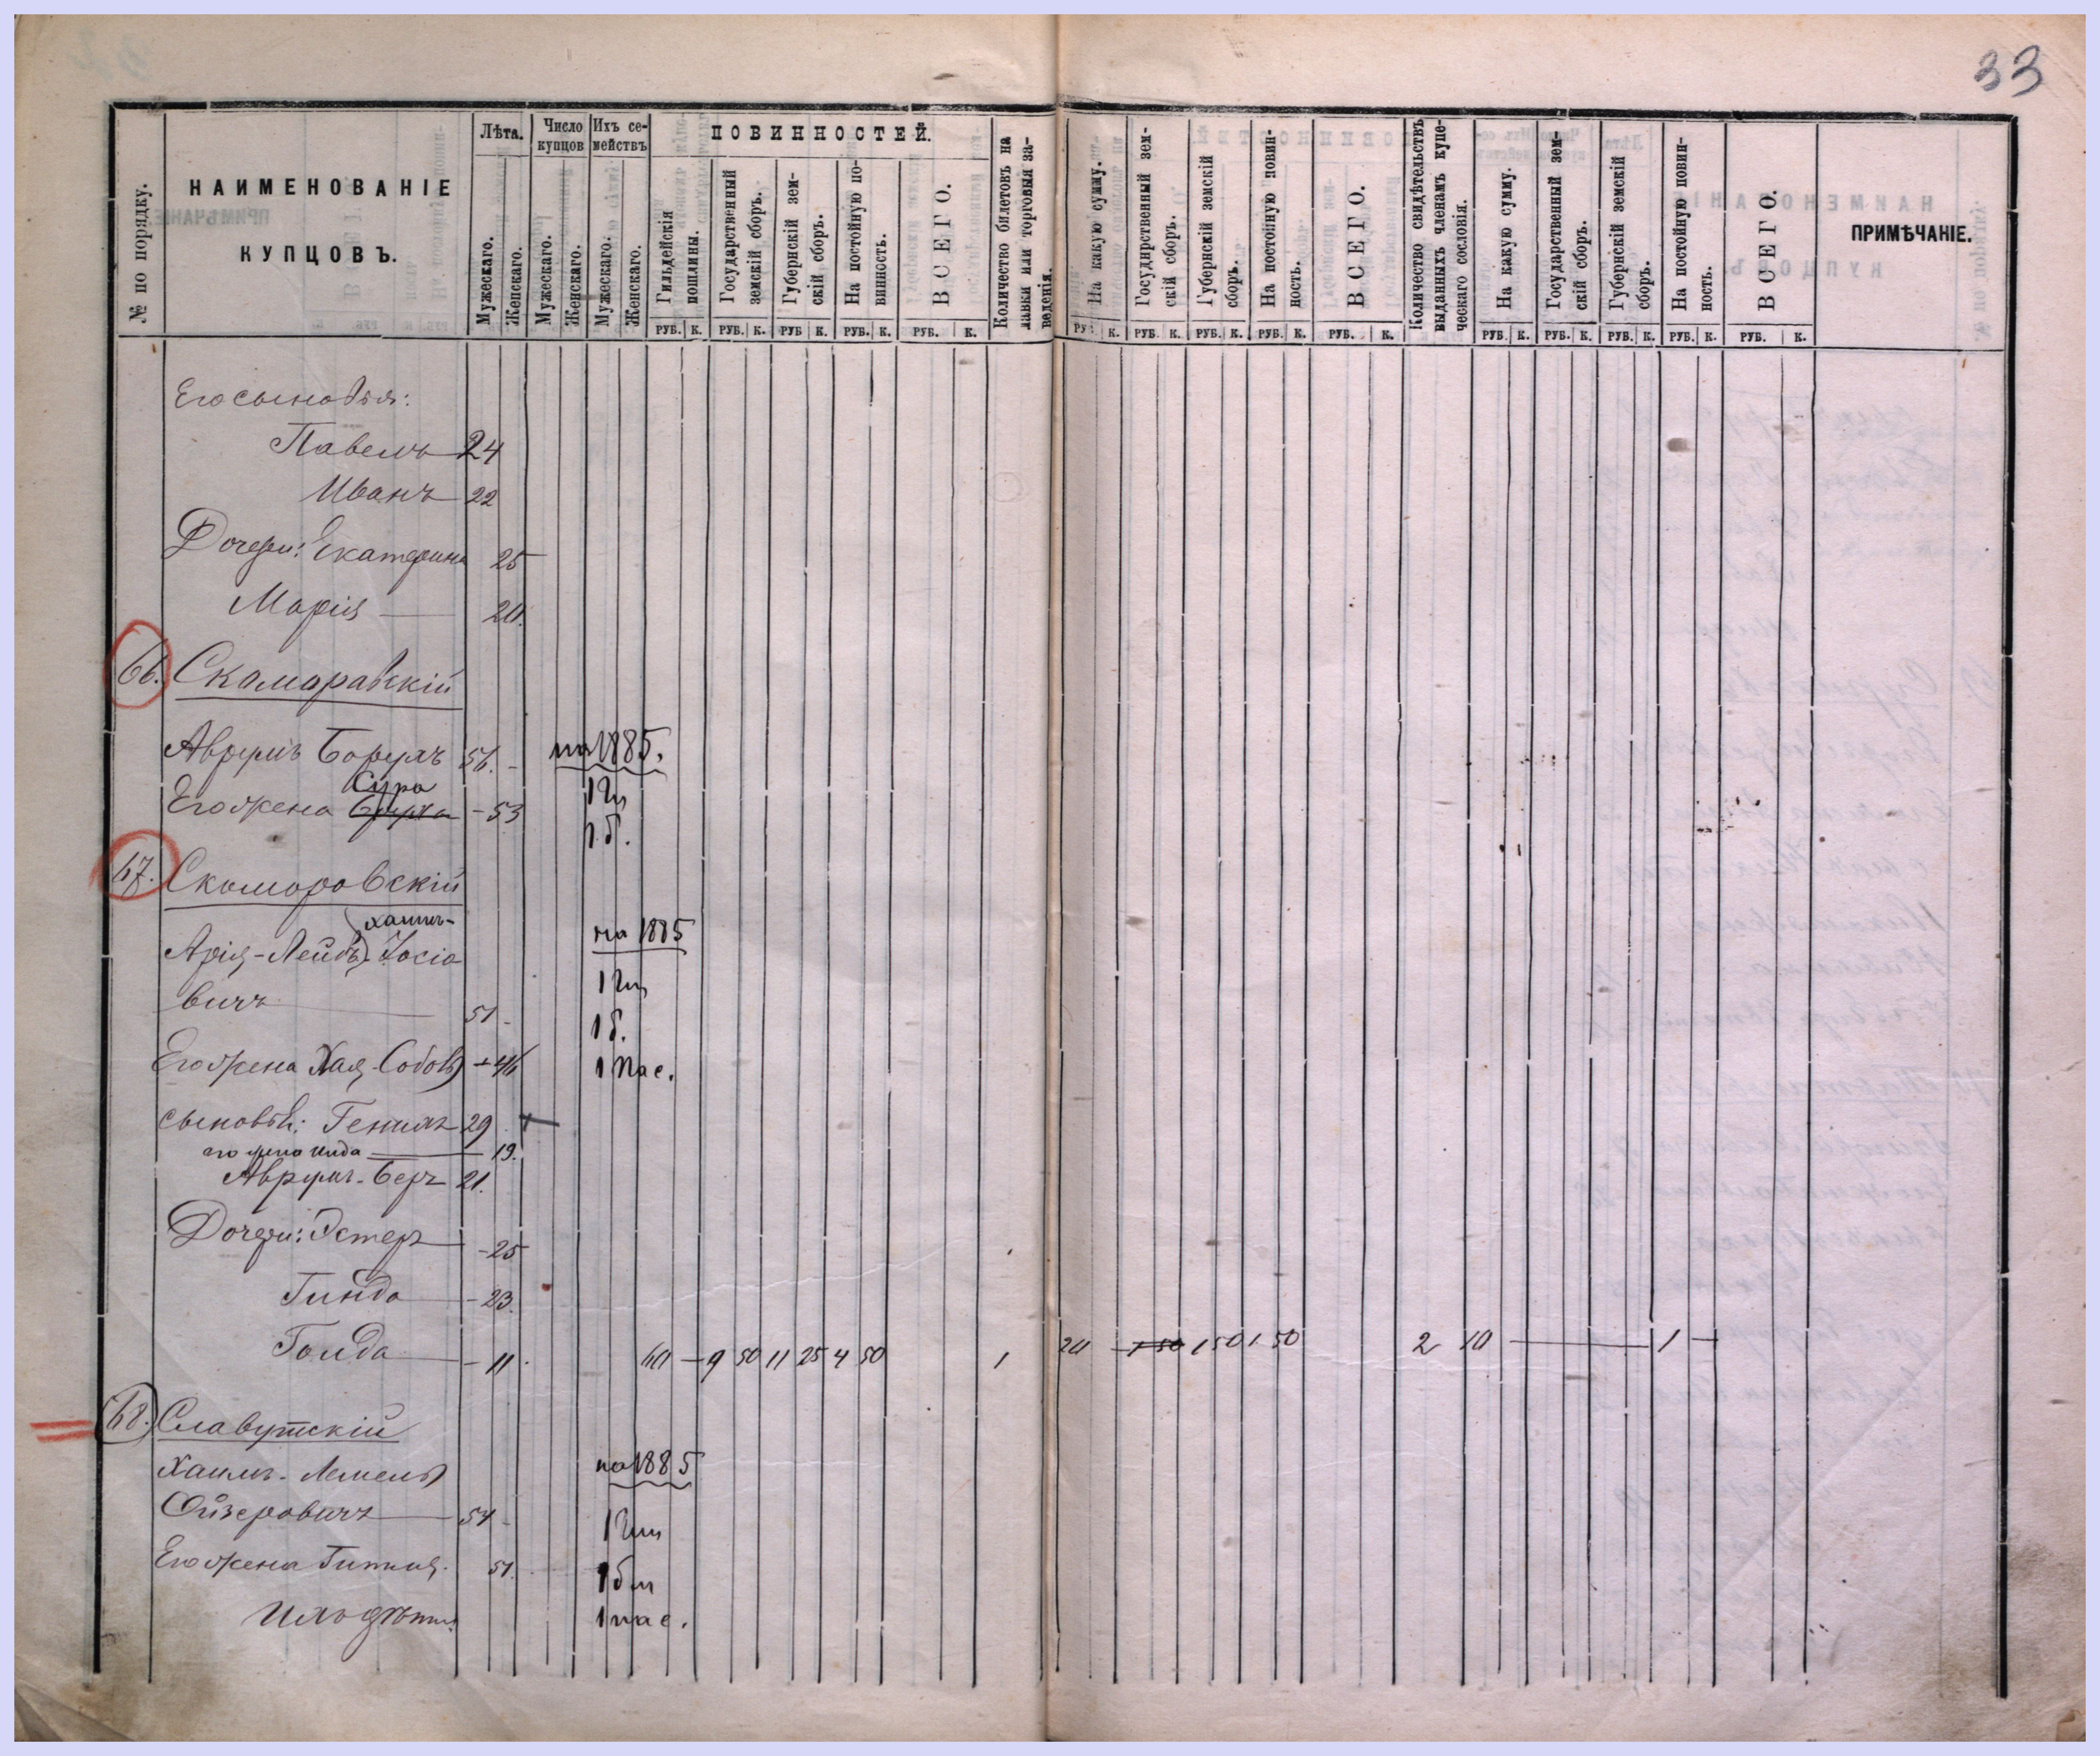 33
№ по порядку.
НАИМЕНОВАНІЕ
КУПЦОВЪ.
Лѣта.
Мужескаго.
Женскаго.
Число купцов
Мужескаго.
Женскаго.
Ихъ се-
мействъ
Мужескаго.
Женскаго.
ПОВИННОСТЕЙ.
Гильдейскія
пошлины.
Государственный
земскій сборъ.
Губернскій зем-
скій сборъ.
На постойную по-
винность.
ВСЕГО.
Количество билетовъ на
лавки или торговыя за-
веденія.
На какую сумму.
Государственный зем-
скій сборъ.
Губернскій земскій
сборъ.
На постойную повин-
ность.
ВСЕГО.
Количество свидѣтельствъ
выданныхъ членамъ купе-
ческаго сословія.
На какую сумму.
Государственный зем-
скій сборъ.
Губернскій земскій
сборъ.
На постойную повин-
ность.
ВСЕГО.
ПРИМѢЧАНІЕ.
РУБ. К. РУБ. К. РУБ К. РУБ. К. РУБ. К. РУБ. К. РУБ. К. РУБ. К. РУБ. К. РУБ. К. РУБ. К. РУБ. К. РУБ. К. РУБ. К. РУБ. К.
Его сыновья:
Павелъ 24
Иванъ 22
Дочери: Екатерина 25
Марія 20.
66. Скамаравскій
Аврумъ Борухъ 56. на 1885.
Сура
Его жена - 53 1 Гил
1 б.
67. Скоморовскій
Хаимъ- на 1885
Арія-Лейбъ Іосіо
вичъ 51 1 Гил
1 б.
Его жена Хая-Собель 46 1 Пас.
сыновья: Генихъ 29
его жена Инда 19.
Аврумъ-Беръ 21.
Дочери: Эстеръ - 25
Гинда - 23.
Голда - 11. 60 - 9 50 11 25 4 50 1 20 1 50 1 50 1 50 2 10 1
68. Славутскій
Хаимъ-Лемель на 1885
Ойзеровичъ 54 1 Гил
Его жена Гитля. 51. 1 бил
Ихъ дѣти: 1 пас.